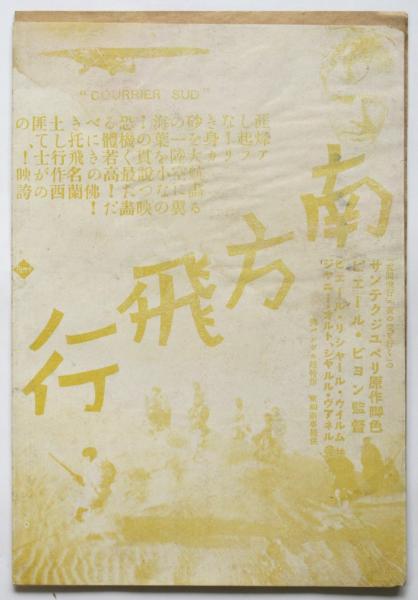 "COURRIER SUD"
涯しなき砂の海!恐るべき土匪の
烽起!身を一葉の機體に托して、
アフリカ大陸を貫く若き飛行士の!
航空小説最高の名作が映
畫になつた!佛蘭西の誇
る翼の映畫だ!
南方飛行
サンテクジュペリ原作脚色
ピエール・ビヨン監督
ピエール・リシャール・ウイルム
ジャニー・オルト、シャルル・ヴアネル
東和商事提供